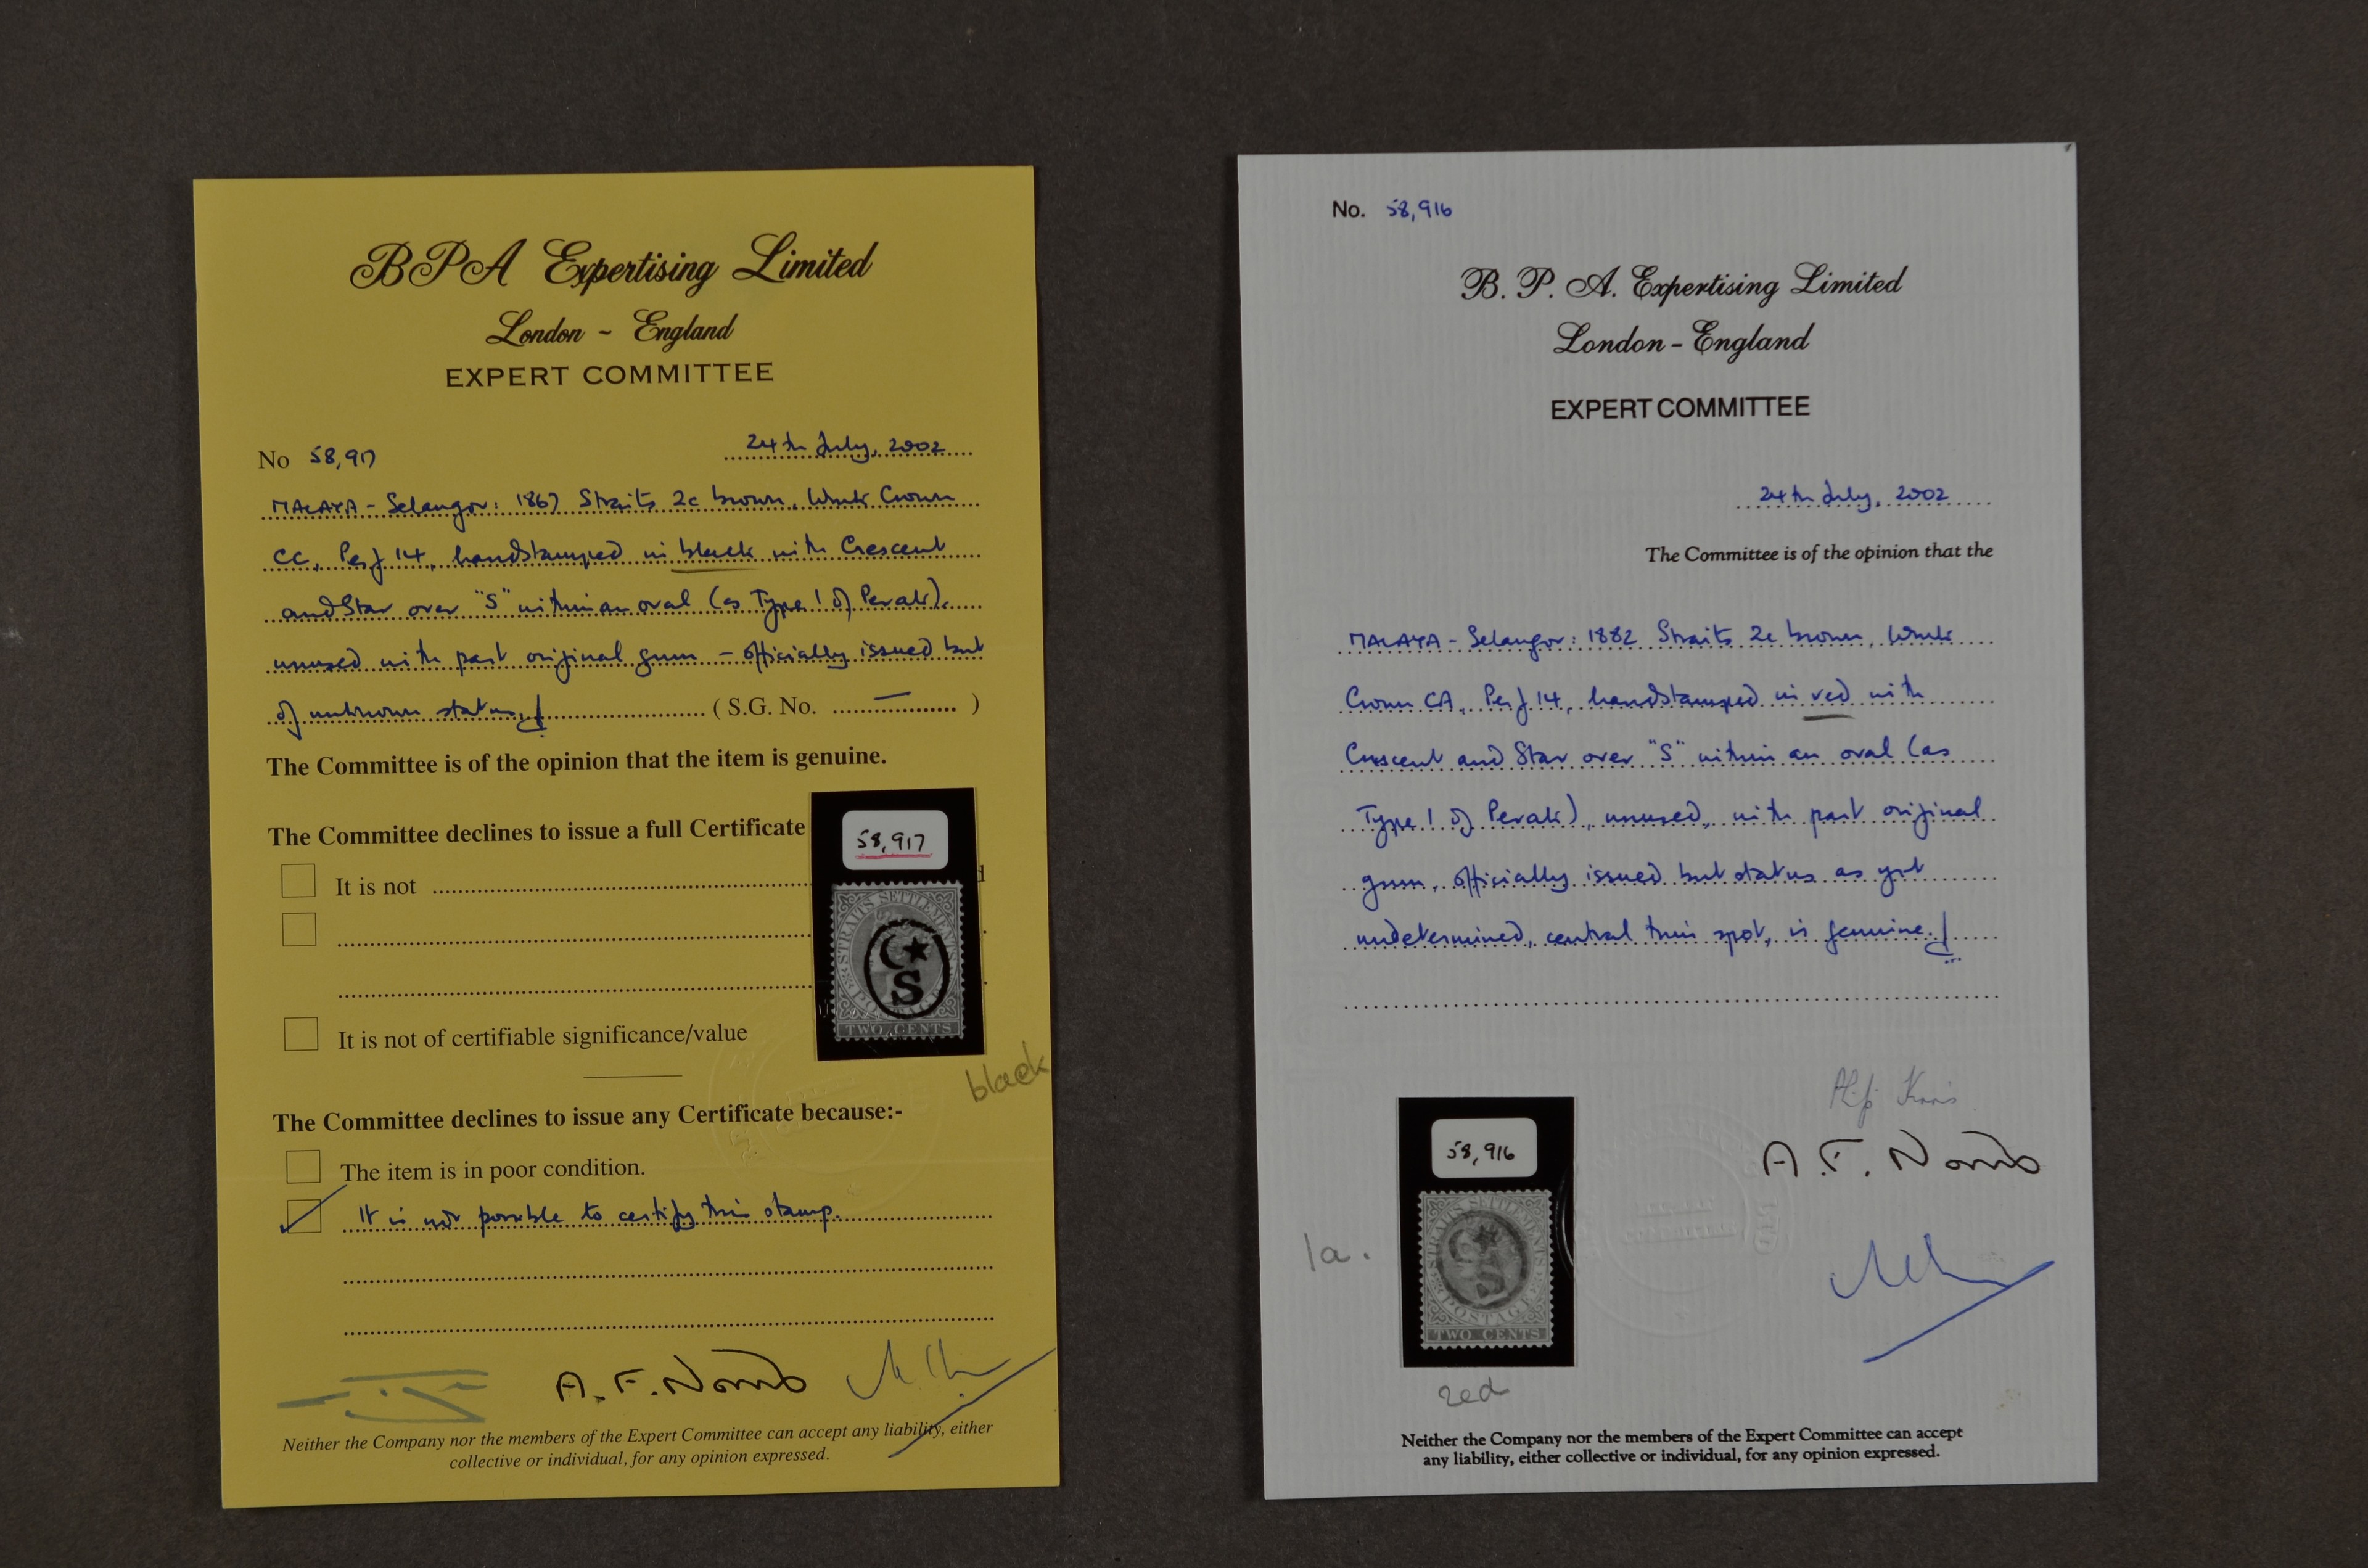 BPA Expertising Limited
London ~ England
EXPERT COMMITTEE
No 58,917
24th July, 2002
MALAYA - Selangor: 1867 Straits 2c brown, Wmk Crown
CC, Perf 14, handstamped in black with Crescent
and Star over "S" within an oval (as Type 1 of Perak),
unused with part original gum - officially issued but
of unknown status,
( S.G. No. — )
The Committee is of the opinion that the item is genuine.
The Committee declines to issue a full Certificate
It is not
It is not of certifiable significance/value
58,917
STRAITS SETTLEMENTS
S
TWO CENTS
black
The Committee declines to issue any Certificate because:-
The item is in poor condition.
It is not possible to certify this stamp.
A. F. Norris
Neither the Company nor the members of the Expert Committee can accept any liability, either
collective or individual, for any opinion expressed.
No. 58,916
B. P. A. Expertising Limited
London - England
EXPERT COMMITTEE
24th July, 2002
The Committee is of the opinion that the
MALAYA - Selangor: 1882 Straits 2c brown, Wmk
Crown CA, Perf 14, handstamped in red with
Crescent and Star over "S" within an oval (as
Type 1 of Perak), unused, with part original
gum, officially issued but status as yet
undetermined, central thin spot, is genuine.
58,916
STRAITS SETTLEMENTS
S
POSTAGE
TWO CENTS
1a.
red
A. F. Norris
Neither the Company nor the members of the Expert Committee can accept
any liability, either collective or individual, for any opinion expressed.